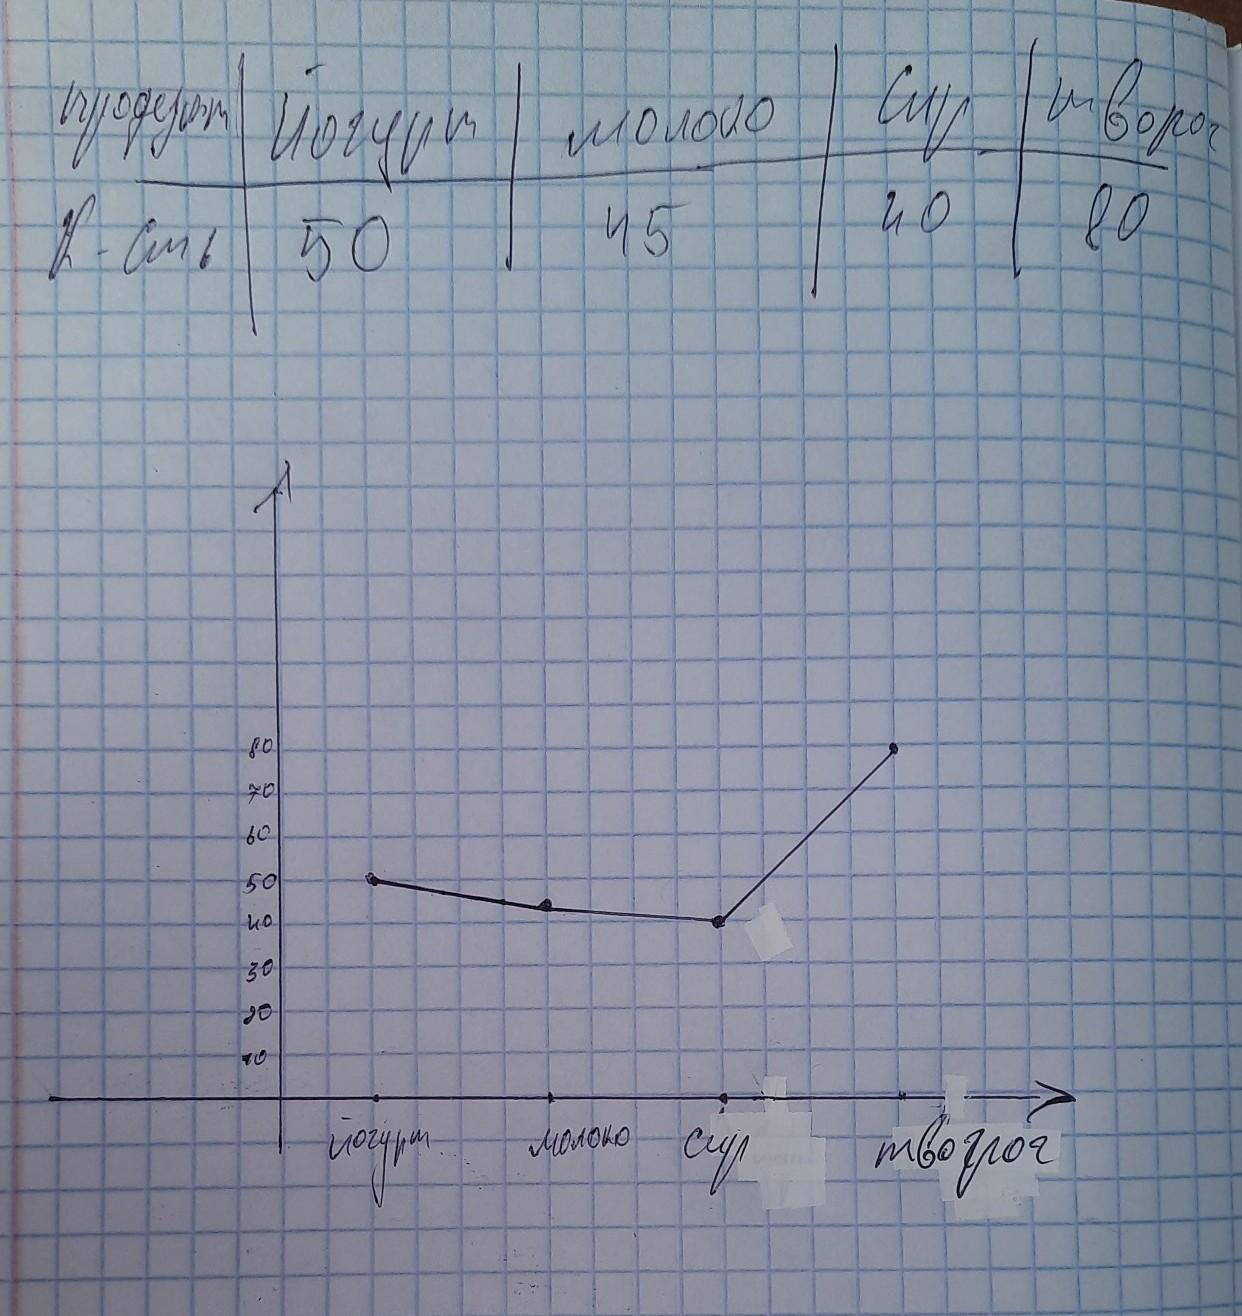 продукт йогурт молоко сир творог
К-сть 50 45 40 80
80
70
60
50
40
30
20
10
йогурт молоко сир творог